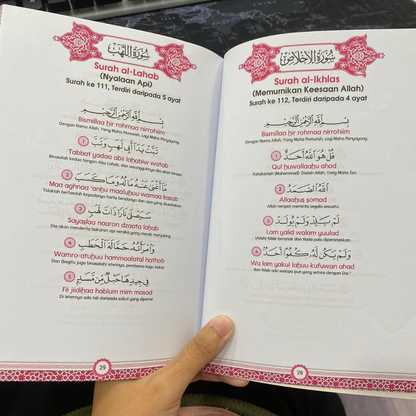 سورة اللهب
Surah al-Lahab
(Nyalaan Api)
Surah ke 111, Terdiri daripada 5 ayat
بسم الله الرحمن الرحيم
Bismillaa hir rohmaa nirrohiim
Dengan Nama Allah, Yang Maha Pemurah, Lagi Maha Penyayang
١ تَبَّتْ يَدَا أَبِي لَهَبٍ وَتَبَّ
Tabbat yadaa abii lahabiw watab
Binasalah kedua tangan Abu Lahab, dan sesungguhnya dia akan binasa
٢ مَا أَغْنَى عَنْهُ مَالُهُ وَمَا كَسَبَ
Maa aghnaa 'anhu maaluhuu wamaa kasab
Tidaklah berfaedah kepadanya harta bendanya dan apa yang diusahakan
٣ سَيَصْلَى نَارًا ذَاتَ لَهَبٍ
Sayaslaa naaron dzaata lahab
Dia akan menderita bakaran api neraka yang marak menjulang
٤ وَامْرَأَتُهُ حَمَّالَةَ الْحَطَبِ
Wamro-atuhuu hammaalatal hathob
Dan (begitu juga binasalah) isterinya, pembawa kayu bakar
٥ فِي جِيدِهَا حَبْلٌ مِنْ مَسَدٍ
Fii jiidihaa hablum mim masad
Di lehernya ada tali daripada sabut yang dipintal
29
سورة الإخلاص
Surah al-Ikhlas
(Memurnikan Keesaan Allah)
Surah ke 112, Terdiri daripada 4 ayat
بسم الله الرحمن الرحيم
Bismillaa hir rohmaa nirrohiim
Dengan Nama Allah, Yang Maha Pemurah, Lagi Maha Penyayang
١ قُلْ هُوَ اللَّهُ أَحَدٌ
Qul huwallaahu ahad
Katakanlah (Muhammad): Dialah Allah, Yang Maha Esa
٢ اللَّهُ الصَّمَدُ
Allaahus somad
Allah tempat meminta segala sesuatu
٣ لَمْ يَلِدْ وَلَمْ يُولَدْ
Lam yalid walam yuulad
٤ وَلَمْ يَكُنْ لَهُ كُفُوًا أَحَدٌ
Wa lam yakul lahuu kufuwan ahad
dan tidak ada sesiapa pun yang setara dengan Dia."
28